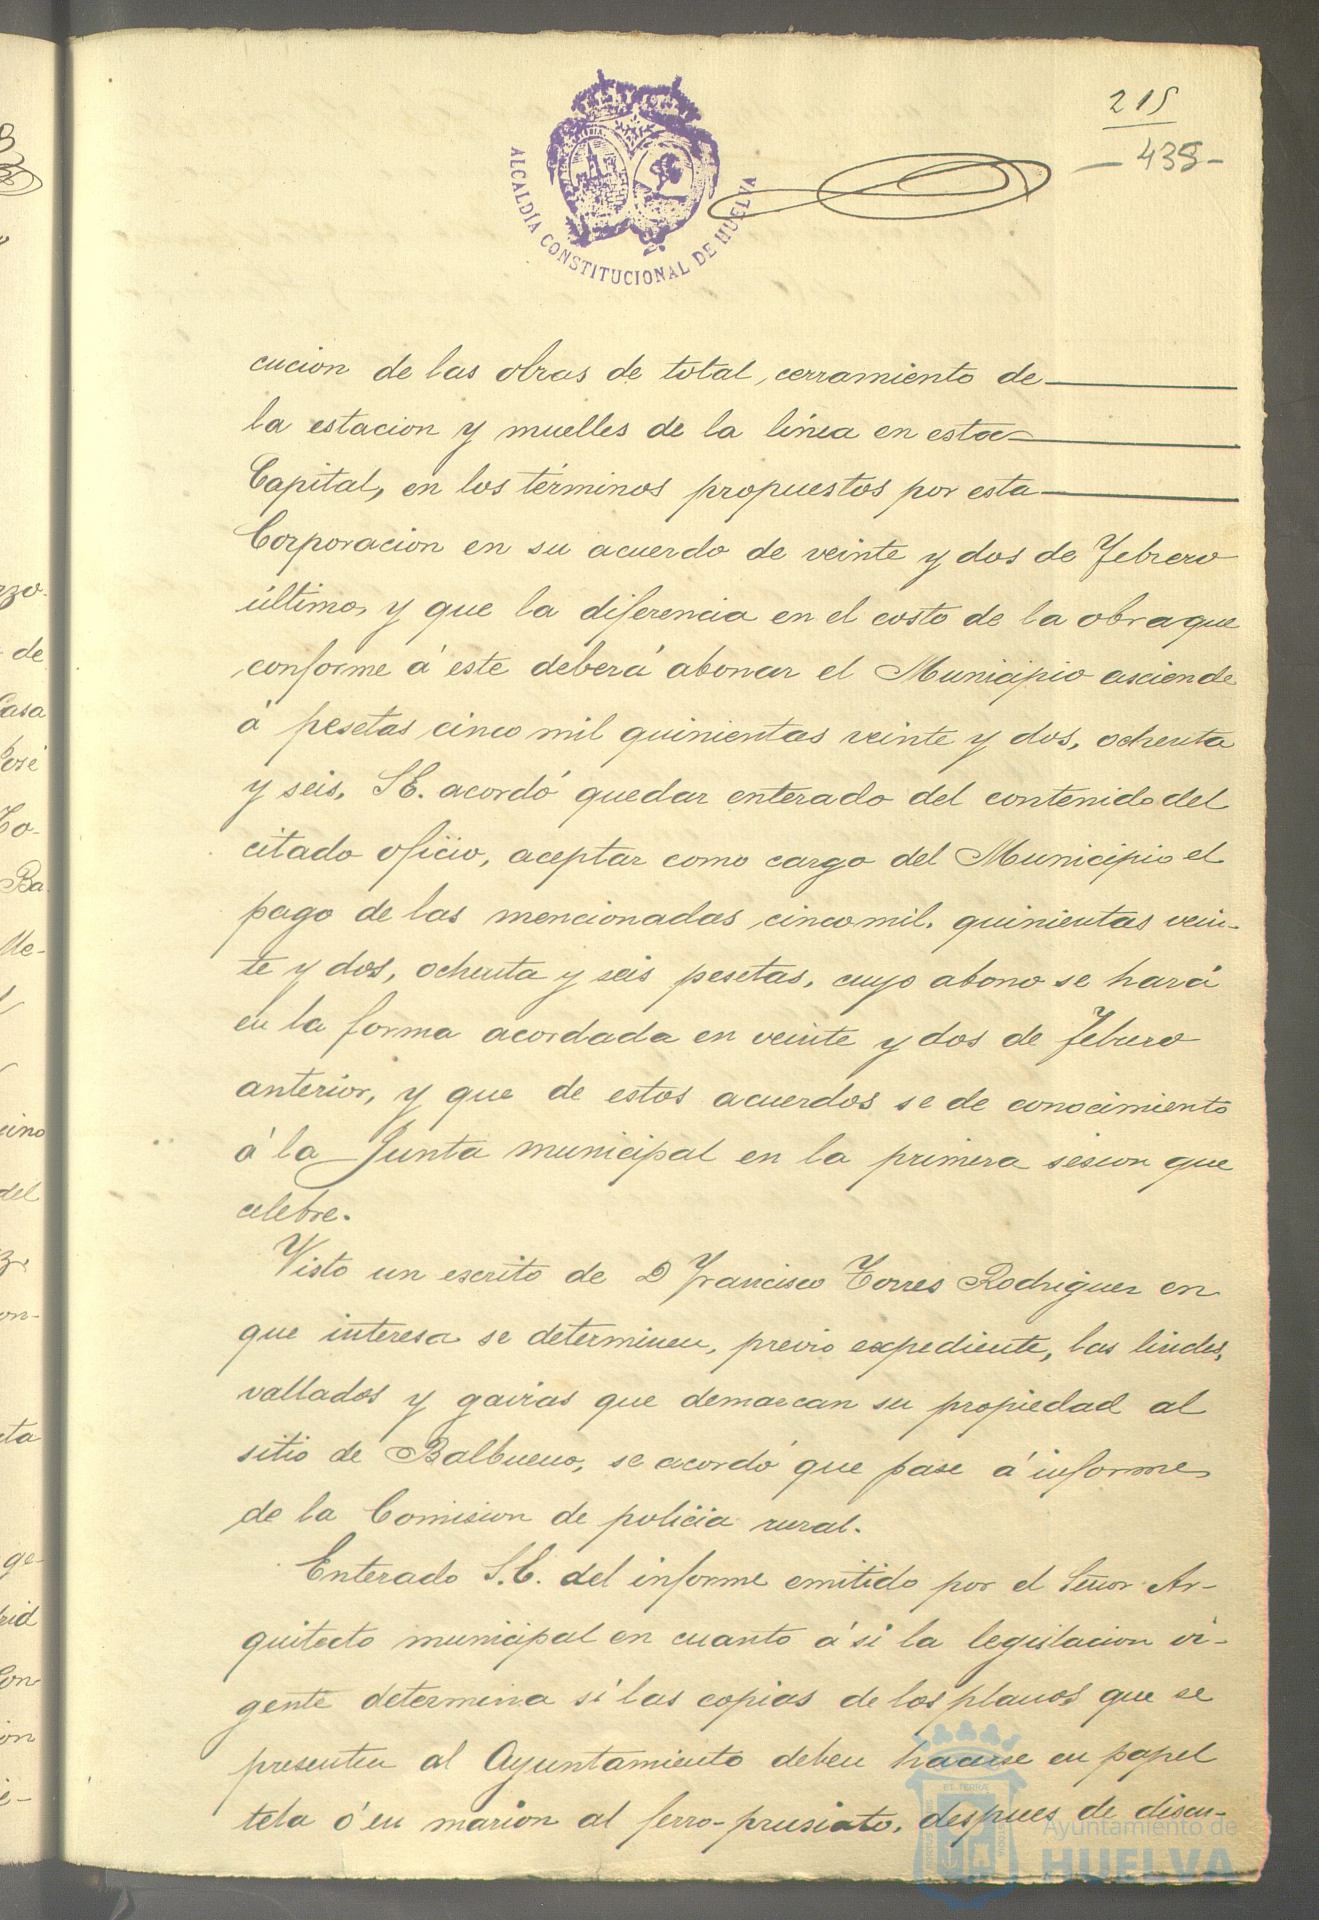 215
- 438 -
ALCALDÍA CONSTITUCIONAL DE HUELVA
cucion de las obras de total, cerramiento de
la estacion y muelles de la línea en esta
Capital, en los términos propuestos por esta
Corporacion en su acuerdo de veinte y dos de Febrero
último, y que la diferencia en el costo de la obra que
conforme á este deberá abonar el Municipio asciende
á pesetas cinco mil quinientas veinte y dos, ochenta
y seis, S.E. acordó quedar enterado del contenido del
citado oficio, aceptar como cargo del Municipio el
pago de las mencionadas cinco mil, quinientas vein-
te y dos, ochenta y seis pesetas, cuyo abono se hará
en la forma acordada en veinte y dos de Febrero
anterior, y que de estos acuerdos se de conocimiento
á la Junta municipal en la primera sesion que
celebre.
Visto un escrito de D Francisco Torres Rodriguez en
que interesa se determinen, previo expediente, las lindes,
vallados y gavias que demarcan su propiedad al
sitio de Balbueno, se acordó que pase á informe
de la Comision de policia rural.
Enterado S.E. del informe emitido por el Señor Ar-
quitecto municipal en cuanto á si la legislacion vi-
gente determina si las copias de los planos que se
presenten al Ayuntamiento deben hacerse en papel
tela ó en marion al ferro-prusiato, despues de discu-
Ayuntamiento de
HUELVA